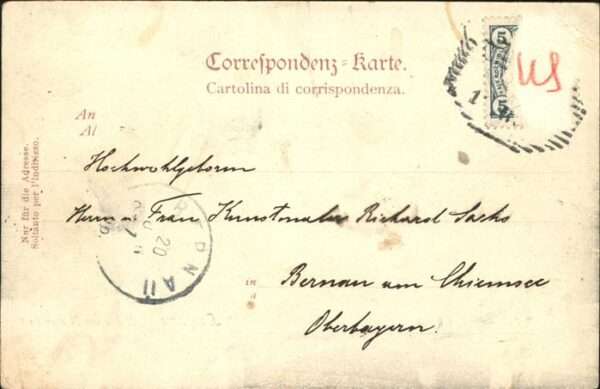 Correspondenz-Karte.
Cartolina di corrispondenza.
5
5
US
An
Al
Nur für die Adresse.
Soltanto per l'indirizzo.
Hochwohlgeboren
Herrn u. Frau Kunstmaler Richard Sachs
in
a
Bernau am Chiemsee
Oberbayern.
BERNAU
20